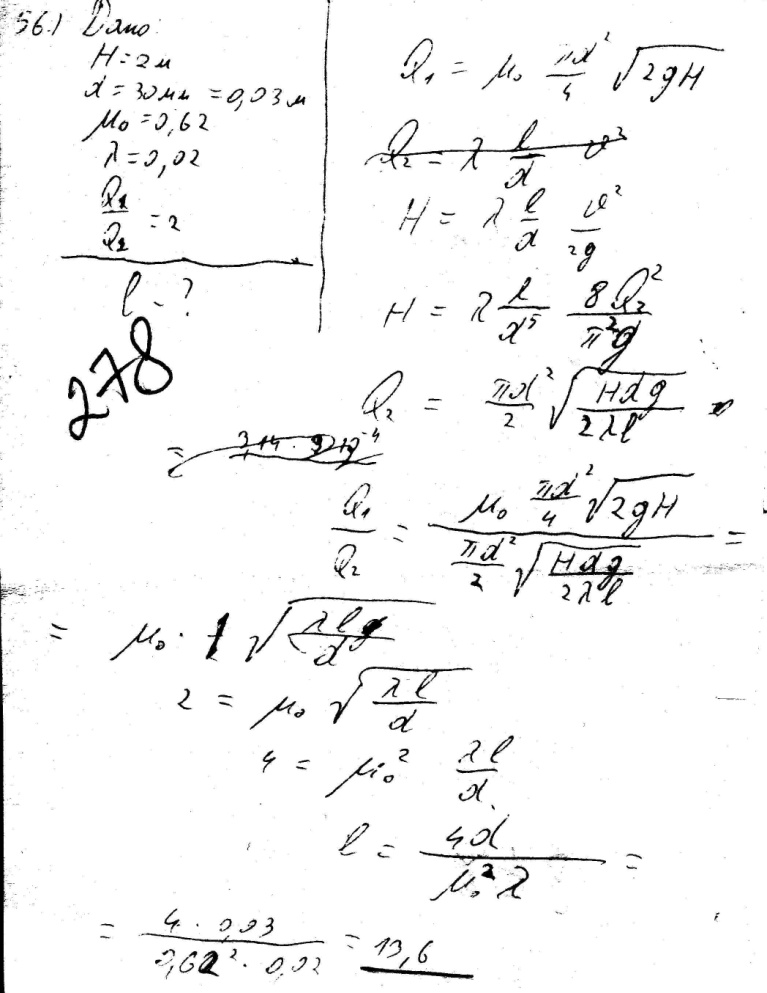 56.) Дано:
H = 2 м
d = 30 мм = 0,03 м
μ₀ = 0,62
λ = 0,02
Q₁/Q₂ = 2
l - ?
278
Q₁ = μ₀ πd²/4 √(2gH)
Q₂ = λ l/d v²
H = λ l/d v²/2g
H = λ l/d⁵ 8Q₂²/π²g
Q₂ = πd²/2 √(Hdg/2λl)
Q₁/Q₂ = μ₀ πd²/4 √(2gH) / πd²/2 √(Hdg/2λl) =
= μ₀ · 1 √(λl/d)
2 = μ₀ √(λl/d)
4 = μ₀² λl/d
l = 4d/μ₀²λ =
= 4 · 0,03/0,62² · 0,02 = 13,6